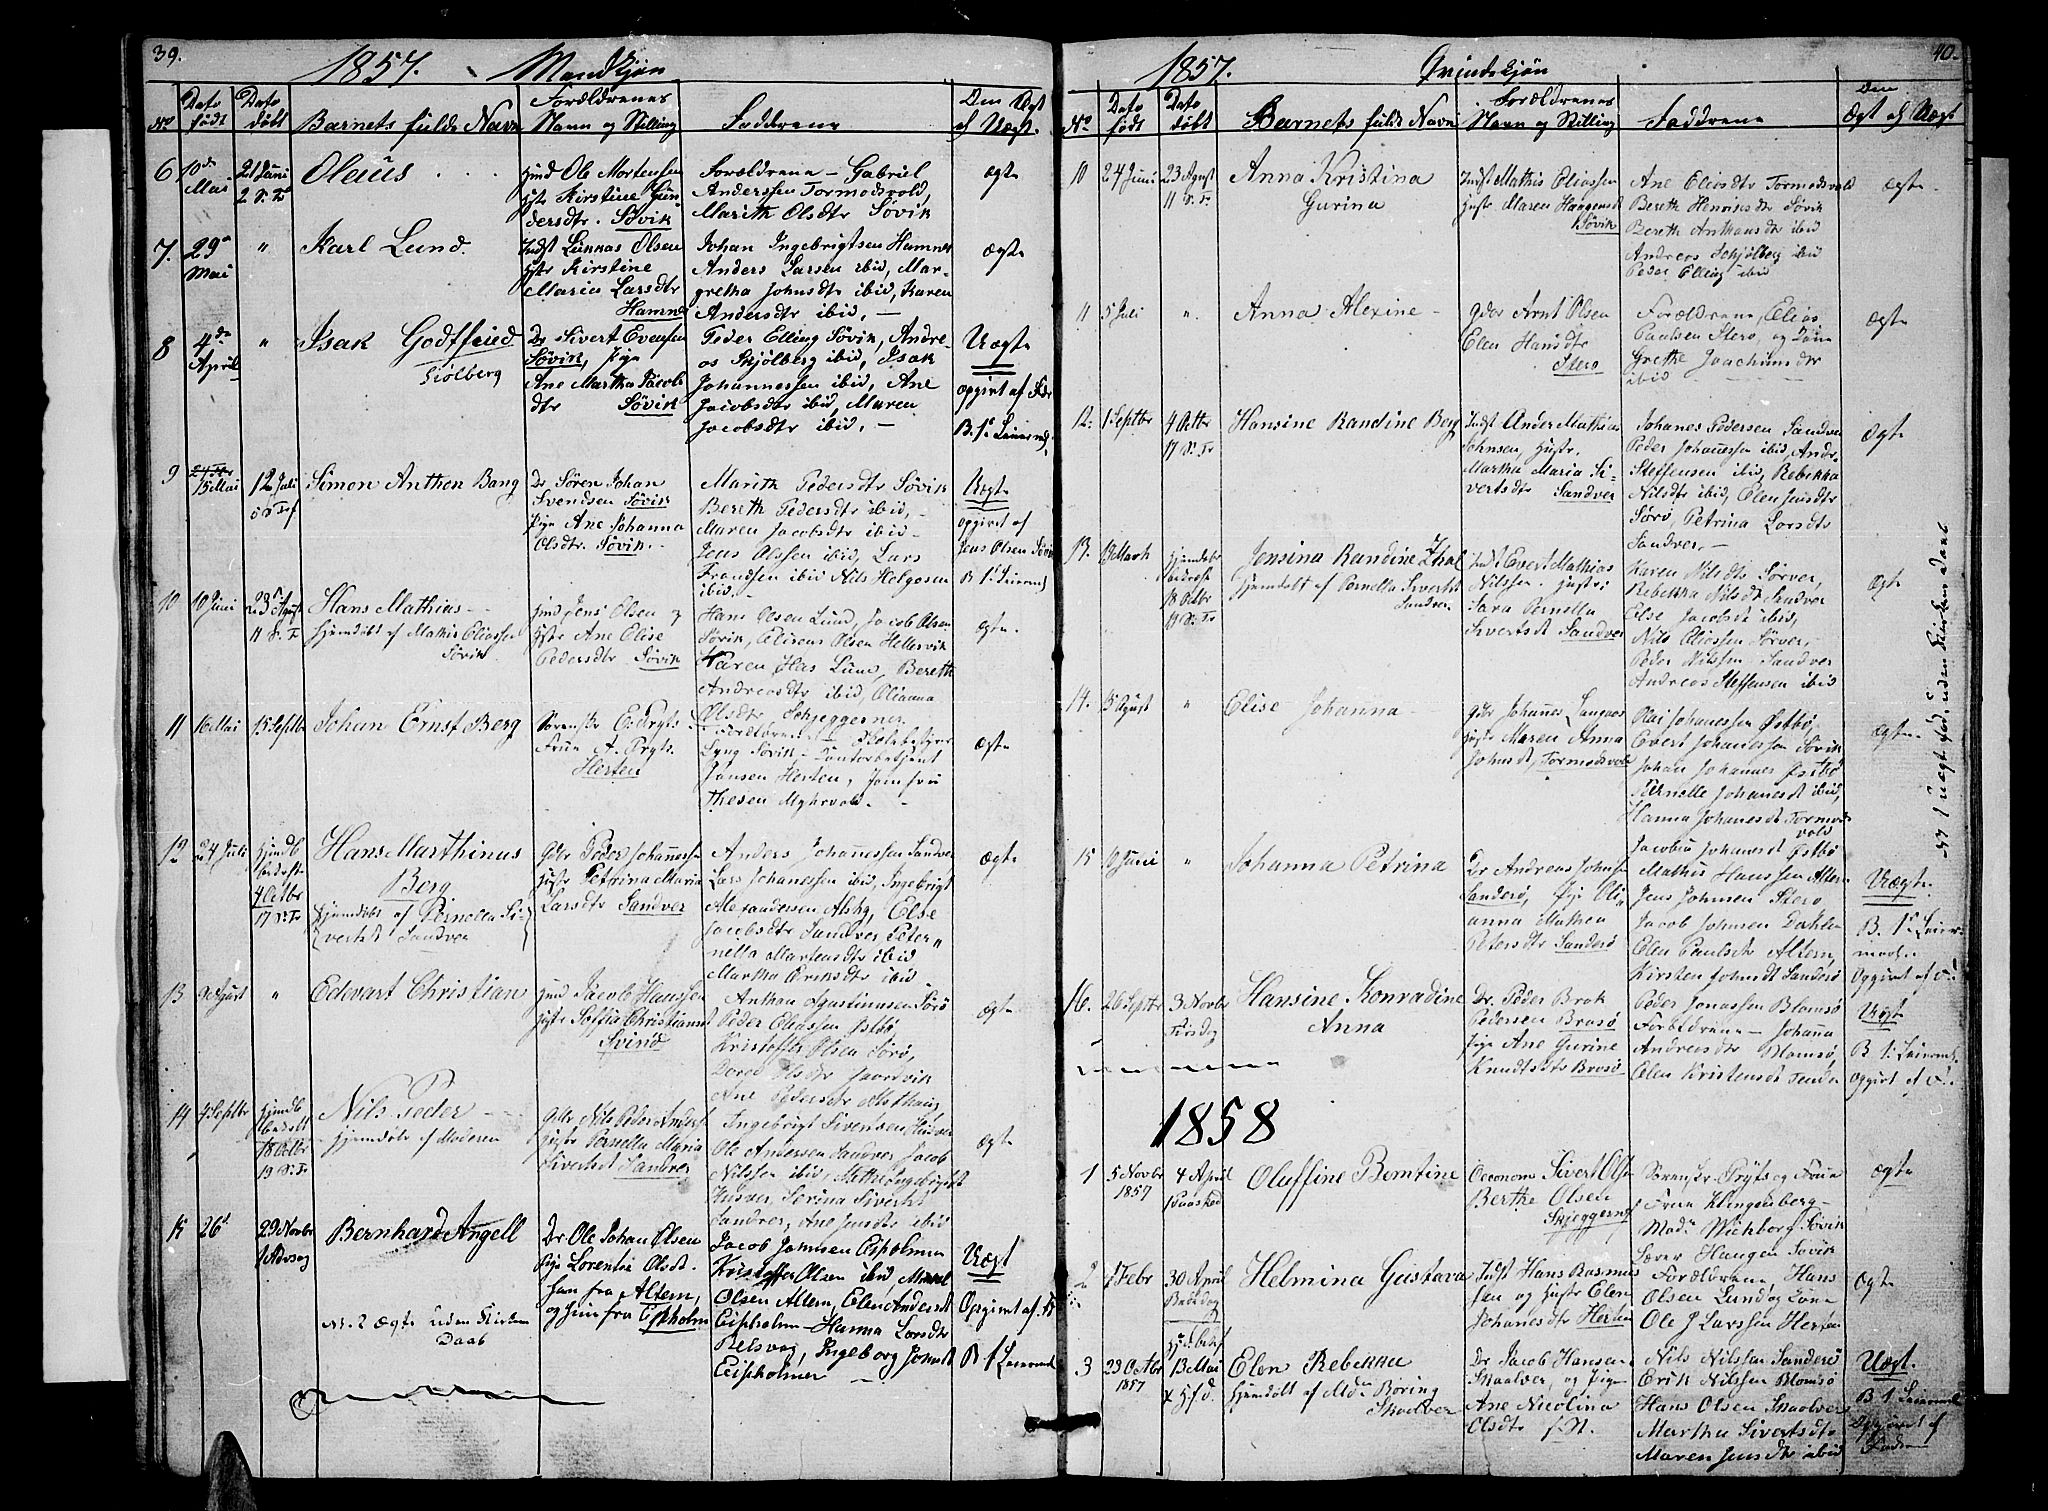 39.
1857. Mandkjøn
No
Dato født
Dato døbt
Barnets fulde Navn
Forældrenes Navn og Stilling
Faddrene
Den Ægt el Uægt.
6
10de Mai
21 Juni
2 S. Tr
Olaus
Hmd Ole Mortensen
Hstr Kirstine Gun
dersdtr. Søvik
Forældrene - Gabriel
Anderssen Tormodsvold,
Marith Olsdtr Søvik
ægte
7.
29 Mai
"
Karl Lund.
Indst Lukkas Olsen
Hstr Kirstine
Maria Larsdtr
Hamnø
Johan Ingebrigtsen Hamnø
Anders Larsen ibid, Mar-
gretha Johnsdtr ibid, Karen
Andersdtr ibid, -
Ægte
8
4de April
"
Isak Godtfried
Siølberg
Dr Sivert Evensen
Søvik, Pige
Ane Martha Jacobs
dtr Søvik
Peder Elling Søvik, Andre-
as Skjølberg ibid, Isak
Johannessen ibid, Ane
Jacobsdtr ibid, Maren
Jacobsdtr ibid, -
Uægte
opgivet af Fdr
B. 1ste Leierm.
9
15 Mai
12 Juli
Simon Anthon Bang
Dr Sören Johan
Svendsen Søvik
Pige Ane Johanna
Olsdtr. Søvik. -
Marith Pedersdtr Søvik
Bereth Pedersdtr ibid, -
Maren Jacobsdtr ibid -
Jens Olssen ibid, Lars
Frandsen ibid Nils Helgesen
ibid. -
Uægte
opgivet af
Jens Olsen Søvik
B 1ste Leierm.
10
10 Juni
23 Agust
11 S. Tr
Hans Mathias -
hjemdöbt af Mathis Eliassen
Søvik
Hmd Jens Olsen og
Hstr Ane Elise
Pedersdtr Søvik
Hans Olsen Lund, Jacob Olsen
Søvik, Eliseus Olsen Hellesvik
Karen Has Lund, Bereth
Andreasdtr ibid, Olianna
Olsdtr, Schjeggernes
ægte.
11
16 Mai
15 Septbr
Johan Ernst Berg
Sorenskr E. Prytz
Fruen A. Prytz.
Herten
Forældrene
Lyng Søvik - Contorbetjent
Jansen Herten, Jomfru
Thesen Myhrvold. -
Ægte
12
24 Juli
4 Octbr
17 S. Tr
Hans Marthinus
Berg
hjemdöbt af Pernella Si-
vertsdt Sandver
Gdbr Peder Johannessen
Hstr Petrina Maria
Larsdtr Sandver
Anders Johannessen Sandver
Lars Johanessen ibid, Ingebrigt
Alexandersen Alshg, Else
Jacobsdtr Sandver, Peter-
nella Martensdtr ibid
Martha Eriksdtr ibid
Ægte
13
"
Edevart Christian
Hmd Jacob Hanssen
Hstr Soffia Christiansdt
Svinø
Anthon Agustinusen Sörö
Peder Eliassen Østbø,
Kristoffer Olsen Sörö,
Ane Pedersdtr Alsthaug
ægte
14
4 Septbr
18 Octbr
19 S. Tr
Nils Peder
hjemdöbt af Moderen
Gdbr Nils Peder Anderss
Hstr Pernella Maria
Sivertsdt Sandver
Ingebrigt Sivertsen Husver
Ole Andersen Sandver, Jacob
Nilssen ibid, Mette Ingebrigtsdt
Husver, Serina Sivertsdt
Sandver, Ane Jensdtr ibid
ægte
15
26
29 Novbr
Bernhard Angell
Dr Ole Johan Olsen
Pige Lorentia Olsdt.
han fra Altern,
og hun fra Eispholm
Jacob Johnsen Eispholmen
Kristoffer Olsen ibid, Mikkel
Olsen Altern, Elen Andersdt
Eispholm - Hanna Larsdtr
Belsvåg, Ingeborg Johnsdt
Eispholmen -
Uægt
Opgivet af F.
B 1 Leierm
No. 2 Ægte uden Kirken
Daab
40.
1857. Qvindekjön
No
Dato født
Dato döbt
Barnets fulde Navn
Forældrenes Navn og Stilling
Faddrene
Den Ægt el Uægt
10
24 Juni
23 Agust
11 S. Tr
Anna Kristina
Gurina
Indst Mathis Eliassen
Hustr Maren Haagensdt
Søvik
Ane Eliasdtr Tormodsvold
Bereth Henriksdtr Søvik
Bereth Anthonsdtr ibid
Andreas Schjølberg ibid
Peder Elling ibid
Ægte
11
5 Juli
"
Anna Alexine -
Gdbr Arnt Olsen
Elen Hansdtr
Sterø
Forældrene, Elias
Paulsen Sterø, og Kone
Grethe Joachimsdtr
ibid
Ægte
12.
1 Septbr
4 Octbr
17 S. Tr
Hansine Randine Berg
Indst Ander Mathias
Johnsen, Hustr.
Martha Maria Si-
vertsdtr Sandver
Johanes Pedersen Sandver
Peder Johannessen ibid, Andr.
Steffensen ibid, Rebekka
Nilsdtr ibid, Elen Jensdtr
Sörö, Petrina Larsdtr
Sandver. -
Ægte
13.
13 Marts
18 Octbr
Jensina Randine Thal
hjemdøbt af Pernella Sivertsdt
Sandver
Indst Evert Mathias
Nilssen. Hustr;
Sara Pernella
Sivertsdt Sandver
Karen Nilsdtr Sörver,
Rebekka Nilsdt Sandver
Else Jacobsdt ibid,
Nils Eliassen Sörver, -
Peder Nilssen Sandver
Andreas Steffensen ibid
Ægte
14.
5 Agust
"
Elise Johanna -
Gdbr Johannes Langaas
Hstr Maren Anna
Johnsdt, Tormodsvold
Olai Johanessen Østbø,
Evert Johanessen Søvik
Johan Johannes Østbø
Pernelle Johanesdt ibid,
Hanna Johanesdt Tormods
vold
Jacobia Johanesdt Østbø
Ægte.
15
10 Juni
"
Johanna Petrina
Dr Andreas Johnsen
Sanderø, Pige Oli-
anna Mathea
Petersdtr Sanderö
Mathis Hanssen Altern
Jens Johnsen Sterø
Jacob Johnsen Dahlen
Elen Paulsdtr Altern,
Kirsten Johnsdt Sanderö
Uægte.
B. 1ste Leier-
maal.
Opgivet af F.
16.
26 Septbr
3 Novbr
Tirsdag
Hansine Konradine
Anna
Dr. Peder Brok
Pedersen Brasø
Pige Ane Gurine
Knudtsdtr Brasø
Peder Jonassen Blomsø
Forældrene - Johanna
Andreasdtr Blomsø,
Elen Kristensdt Tenden
Uægt
B 1: Leierm.
Opgivet af F.
No 1 uægt fød. uden Kirken døbt
1858
1
5 Novbr
1857
4 April
Paasked
Oluffine Bomtine
Oeconom Sivert Olsen
Berthe Olsen
Skjeggernes
Sorenskr Prytz og Frue
Fruen Klingenberg -
Mad. Wichborg Søvik
Haugen Søvik
Ægte
2
1 Febr
30 April
Bededag
Helmina Gustava
Indst Hans Rasmus
sen og Hustr Elen
Johanesdtr Herten
Forældrene, Hans
Olsen Lund og Kone
Ole J Larssen Herten
Ægte
3
23 Octbr
1857
13 Mai
Elen Rebekka
hjemdöbt af Mdm Boring
Skaalver
Dr Jacob Hansen
Skaalver, og Pige
Ane Nicolina
Olsdtr f. St.
Nils Nilssen Sanderö
Erik Nilssen Blomsø
Hans Olsen Skaalver
Martha Sivertsdtr
Maren Jensdtr ibid
Uægt.
B 1 Leierml
Opgivet af
Fadren